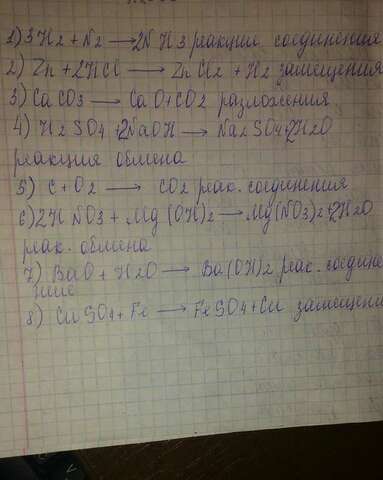 1) 3H2 + N2 → 2NH3 реакция соединения
2) Zn + 2HCl → ZnCl2 + H2 замещения
3) CaCO3 → CaO + CO2 разложения
4) H2SO4 + 2NaOH → Na2SO4 + 2H2O
реакция обмена
5) C + O2 → CO2 реак. соединения
6) 2HNO3 + Mg(OH)2 → Mg(NO3)2 + 2H2O
реак. обмена
7) BaO + H2O → Ba(OH)2 реак. соедине
ние
8) CuSO4 + Fe → FeSO4 + Cu замещени